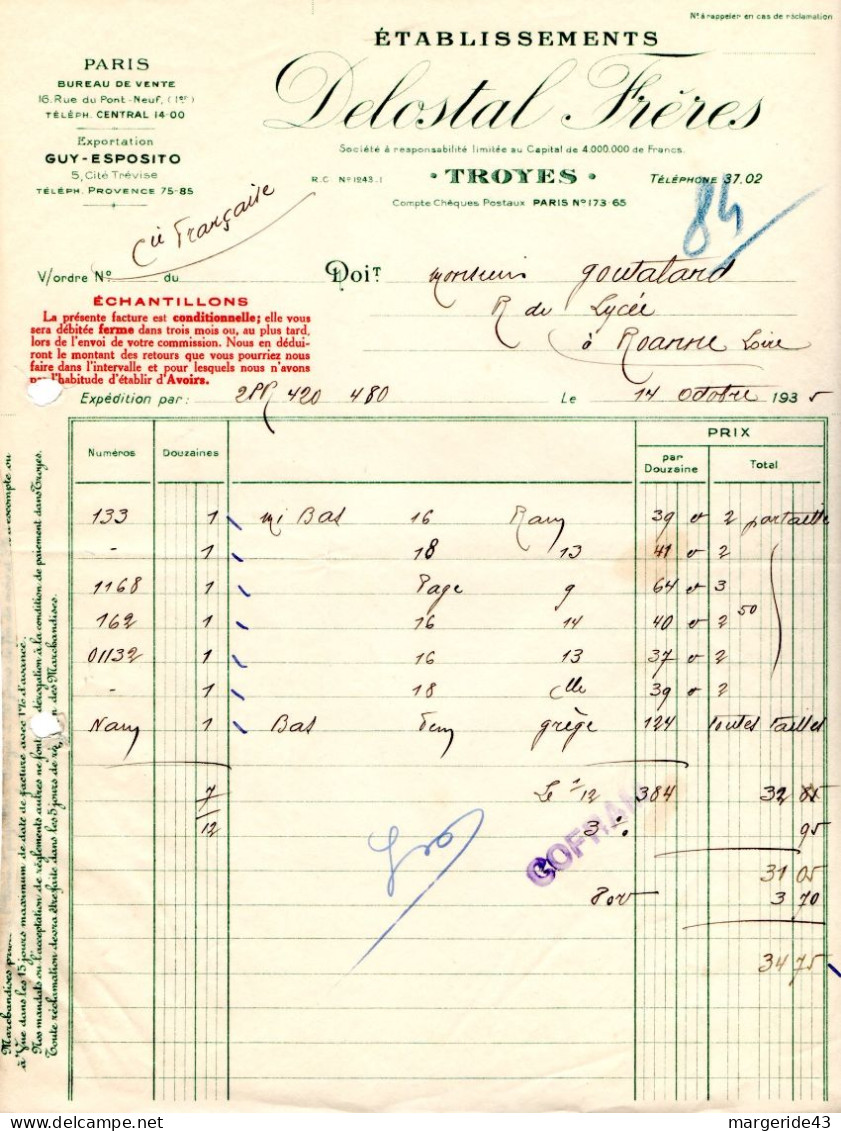 Nº à rappeler en cas de réclamation
PARIS
BUREAU DE VENTE
16, Rue du Pont-Neuf, (1er)
TÉLÉPH. CENTRAL 14-00
Exportation
GUY-ESPOSITO
5, Cité Trévise
TÉLÉPH. PROVENCE 75-85
ÉTABLISSEMENTS
Delostal Frères
Société à responsabilité limitée au Capital de 4.000.000 de Francs.
R.C. Nº 1243.1 • TROYES • TÉLÉPHONE 37.02
Compte Chèques Postaux PARIS Nº 173-65
84
Cie Française
V/ordre Nº du
Doit Monsieur Goutaland
R du Lycée
à Roanne Loire
ÉCHANTILLONS
La présente facture est conditionnelle; elle vous
sera débitée ferme dans trois mois ou, au plus tard,
lors de l'envoi de votre commission. Nous en dédui-
ront le montant des retours que vous pourriez nous
faire dans l'intervalle et pour lesquels nous n'avons
pas l'habitude d'établir d'Avoirs.
Expédition par: 2PR 420 480 Le 14 Octobre 1935
Numéros Douzaines PRIX
par Douzaine Total
133 1 mi Bas 16 39 2 par taille
- 1 18 13 41 2
1168 1 Page 9 64 3
162 1 16 14 40 2 50
01132 1 16 13 37 2
- 1 18 39 2
1 Bas grège 124 toutes tailles
7/12 Le 1/12 384 32
3 % 95
COFRAN
31 05
3 70
34 75
à vue dans les 15 jours maximum de date de facture avec 1% d'avance.
Toute réclamation devra être faite dans les 5 jours de
margeride43